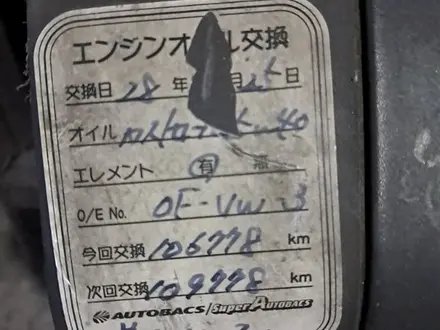 エンジンオイル交換
交換日 28年 月25日
オイル カストロ 40
エレメント 有 無
O/E No. OF-VW-3
今回交換 106778 km
次回交換 109778 km
AUTOBACS Super AUTOBACS